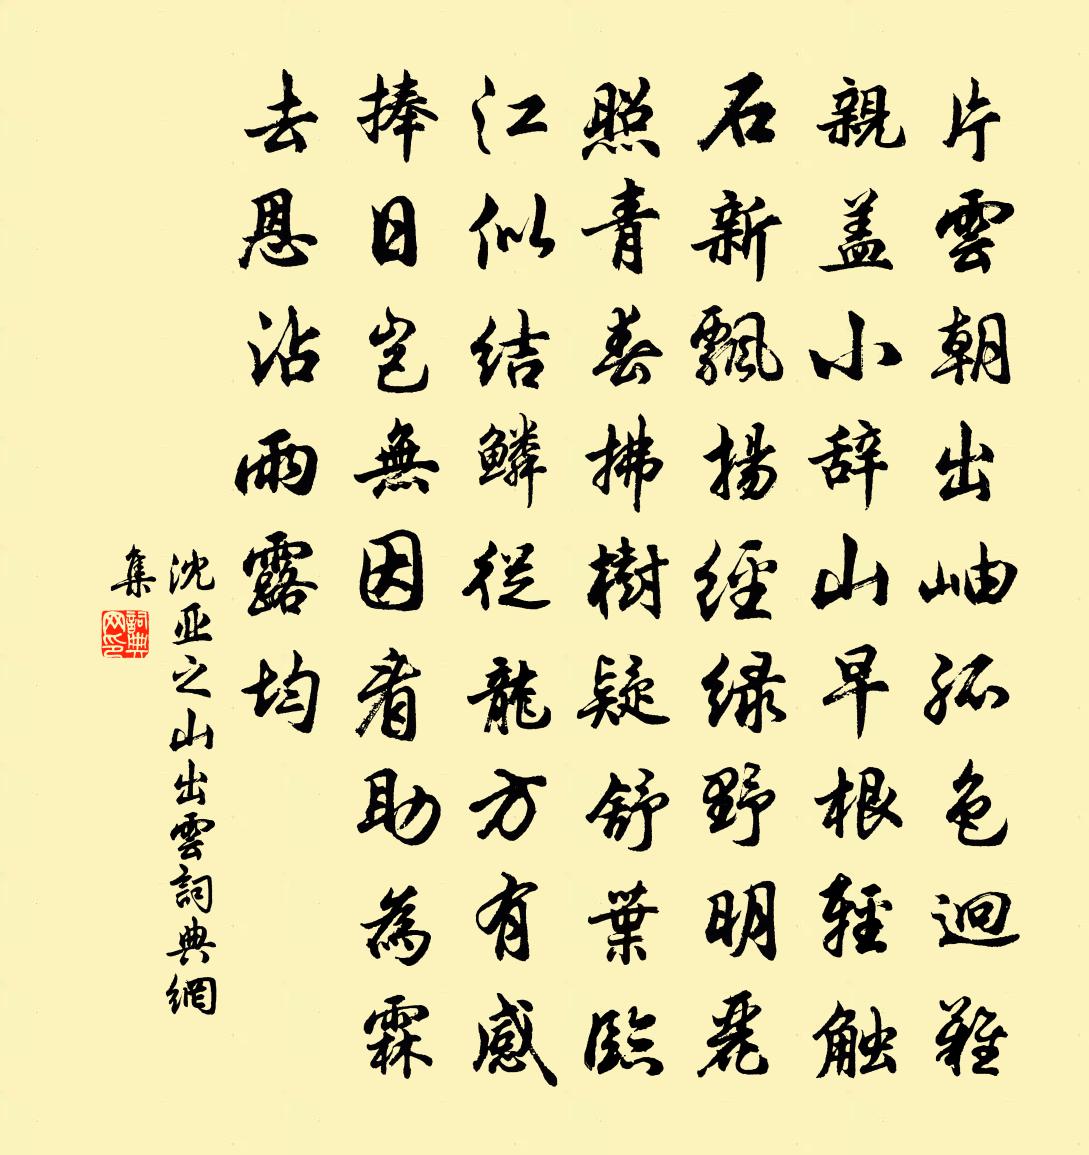 片雲朝出岫孤色迥難
親盖小辞山早根輕触
石新飄揚經绿野明麗
照青春拂樹疑舒葉臨
江似結鱗從龍方有感
捧日豈無因看助為霖
去恩沾雨露均
沈亚之山出雲詞典網
集
詞典网印